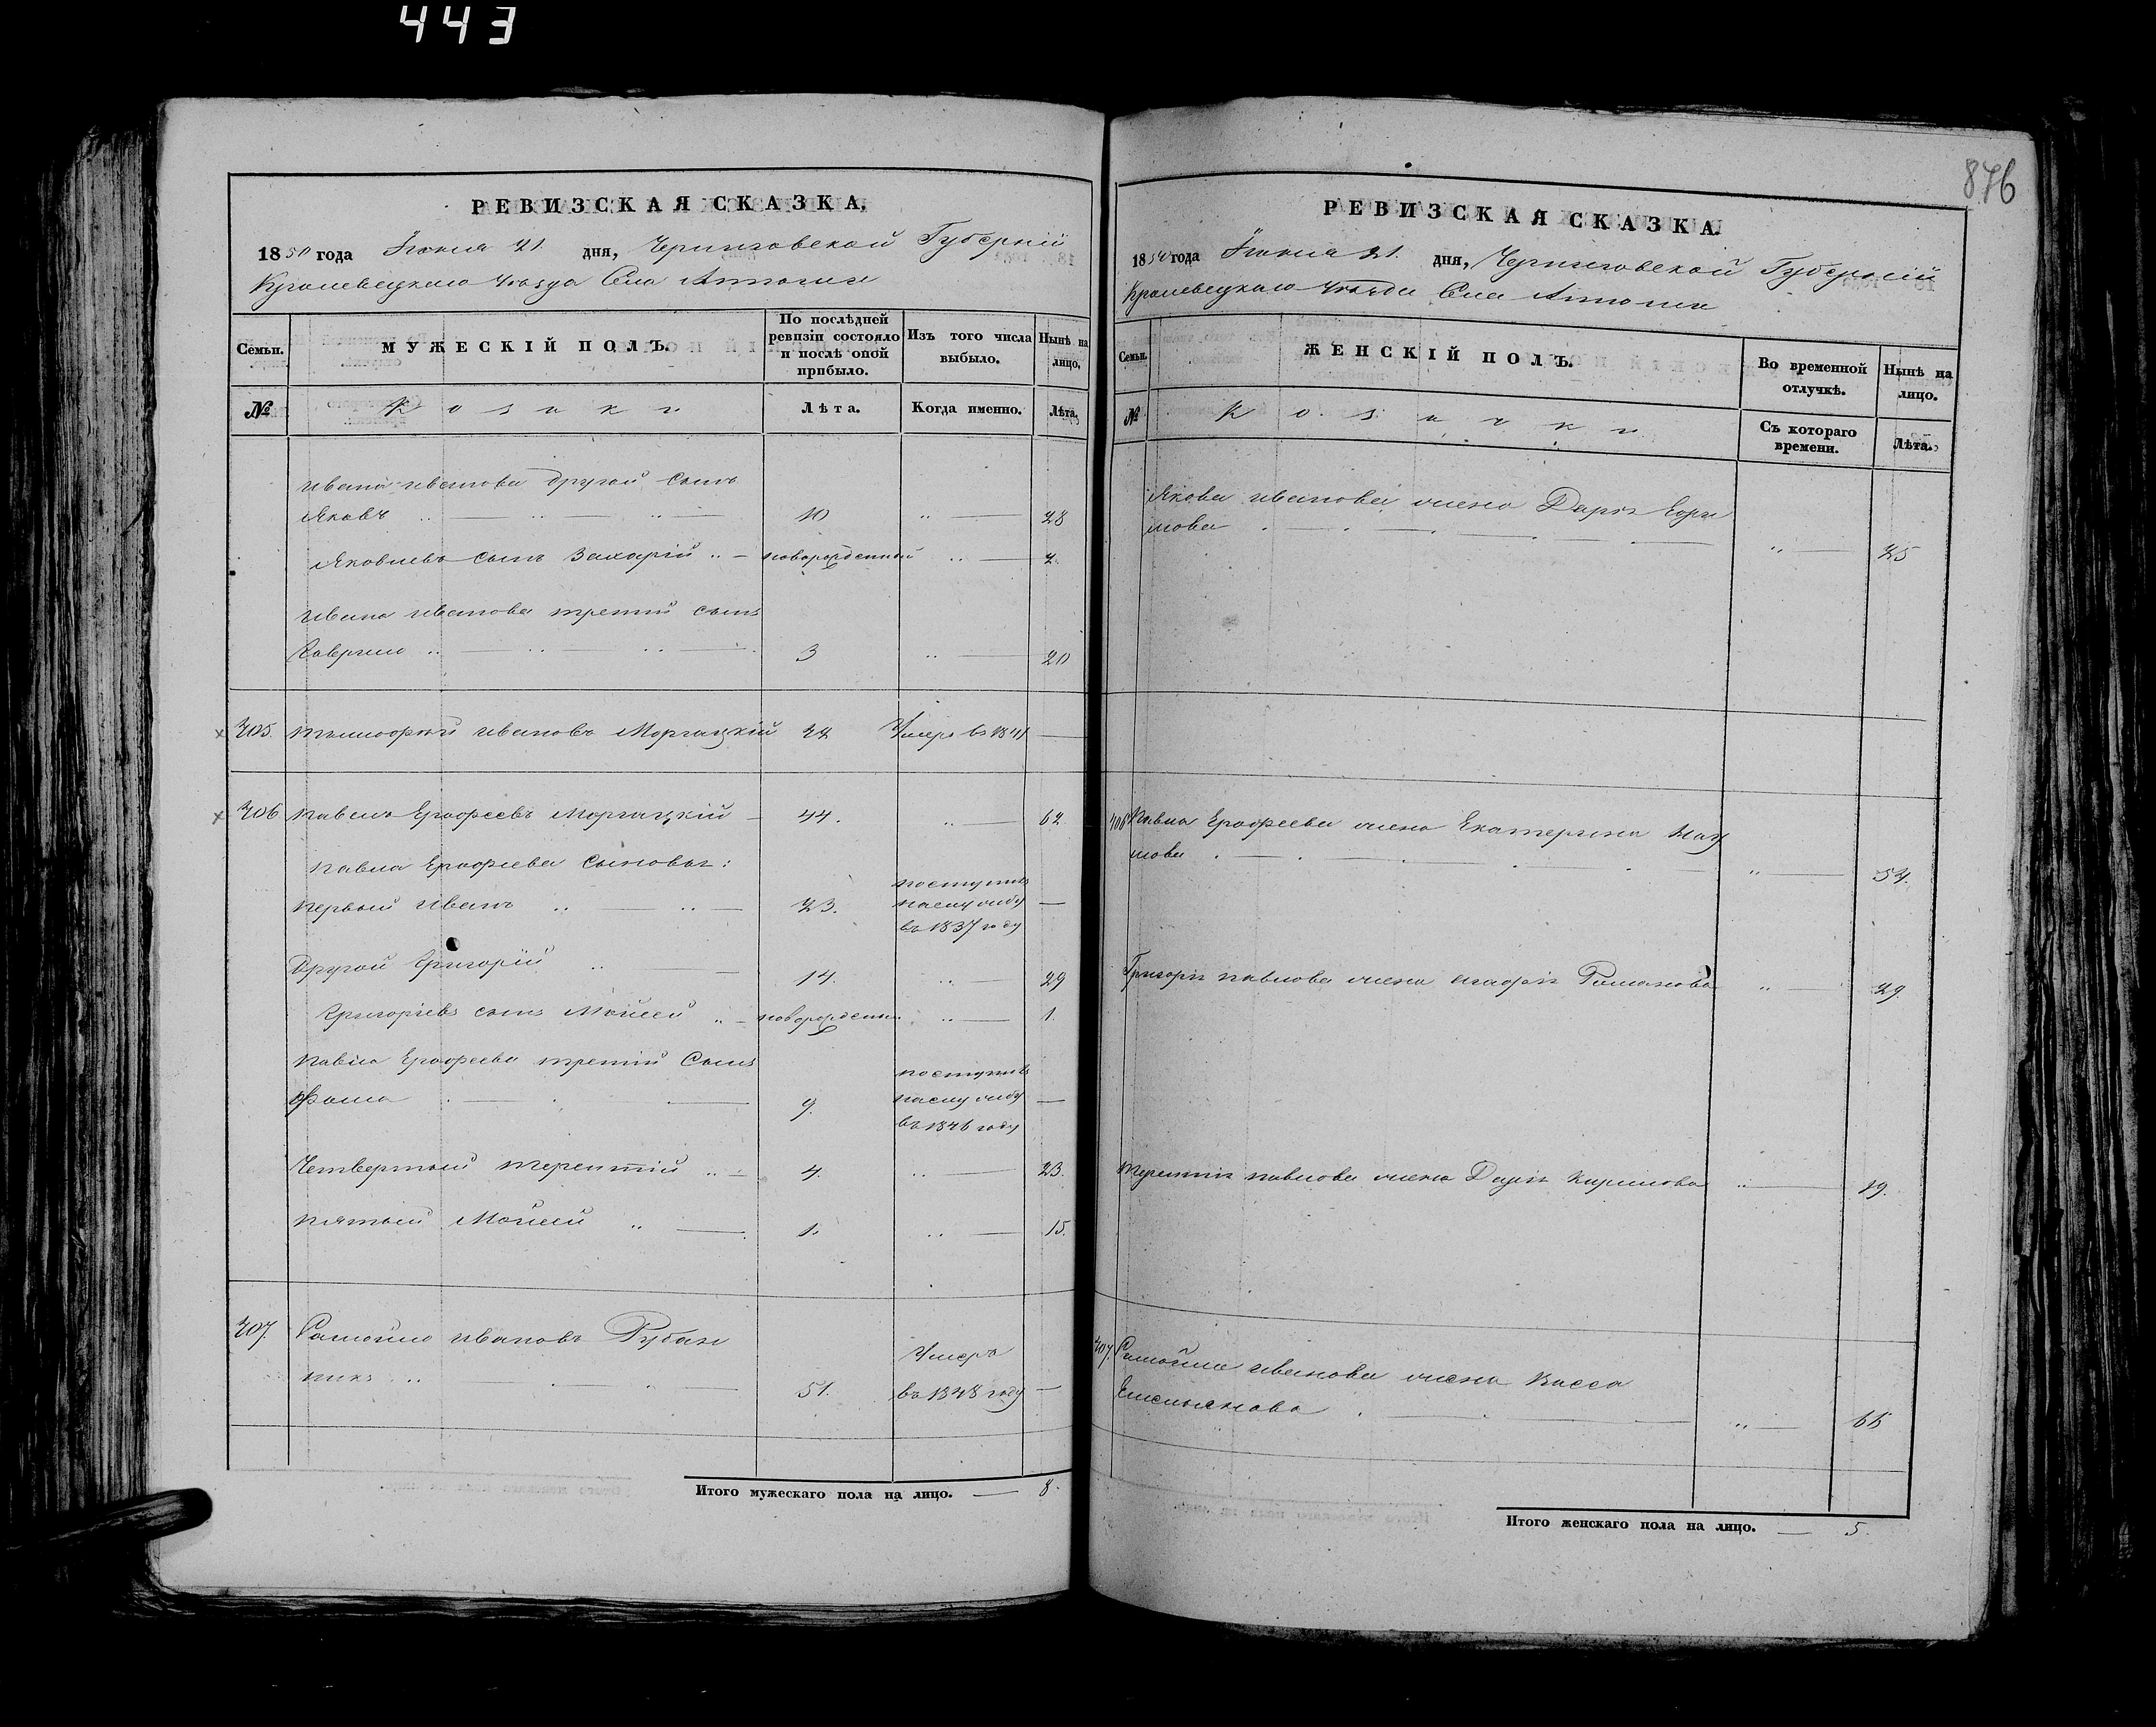 443
876
РЕВИЗСКАЯ СКАЗКА,
1850 года Іюня 21. дня, Черниговской Губерніи
Кролевецкаго Уѣзда Села
Семьи.
МУЖЕСКІЙ ПОЛЪ.
По послѣдней ревизіи состояло и послѣ оной прибыло.
Изъ того числа выбыло.
Нынѣ на лицо.
№
Козаки
Лѣта.
Когда именно.
Лѣта.
Ивана Иванова другой сынъ
Яковъ 10 28
Яковлевъ сынъ Захарій новорожденный 2.
Ивана Иванова третій сынъ
Гаврило 3 20
705. Тимофѣй Ивановъ 22 Умеръ въ 1841
706 Павелъ Ерофеевъ 44. 62.
Павла Ерофеева сыновья:
Первый Иванъ 23. поступилъ
на службу
въ 1837 году
Другой Григорій 14. 29
Григоріевъ сынъ Мойсей новорожденный 1.
Павла Ерофеева третій Сынъ
Фома 9. поступилъ
на службу
въ 1846 году
Четвертый Терентій 4. 23.
Пятый Мойсей 1. 15.
707. Самойло Ивановъ Рубан
никъ 51. Умеръ
въ 1848 году
Итого мужескаго пола на лицо. 8.
РЕВИЗСКАЯ СКАЗКА.
1850 года Іюня 21. дня, Черниговской Губерніи
Кролевецкаго Уѣзда Села
Семьи.
ЖЕНСКІЙ ПОЛЪ.
Во временной отлучкѣ.
Нынѣ на лицо.
№
Козачки
Съ котораго времени.
Лѣта.
Якова Иванова жена Дарья
25
706 Павла Ерофеева жена Екатерина Нау
мова 54.
Григорія Павлова жена Агафія Романова 29.
Терентія Павлова жена Дарія Кирилова 19.
707. Самойла Иванова жена Васса
Емельянова 66
Итого женскаго пола на лицо. 5.